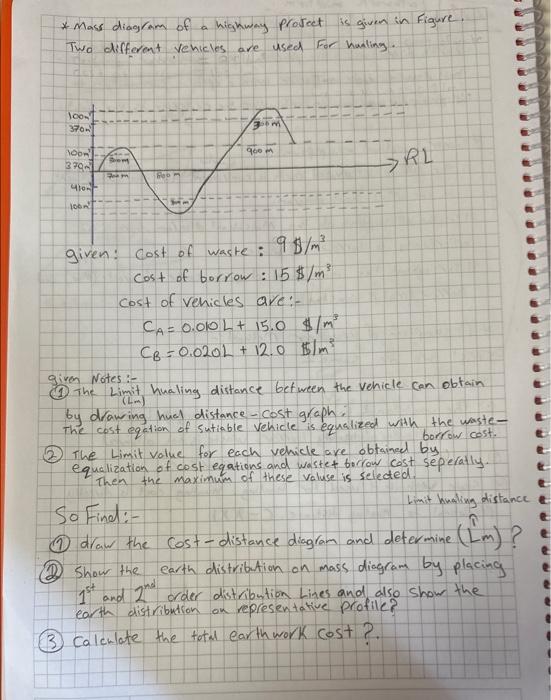 * Mass diagram of a highway project is given in Figure.
Two different vehicles are used for hualing.
100m³
370m³
100m³
370m³
410m³
100m³
700m
800m
900m
RL
given: Cost of waste : 9 $/m³
Cost of borrow : 15 $/m³
Cost of vehicles are:-
CA = 0.010 L + 15.0 $/m³
CB = 0.020L + 12.0 $/m³
given Notes:-
① The Limit hualing distance between the vehicle can obtain
(Lm)
by drawing huel distance - cost graph.
The cost eqation of sutiable vehicle is equalized with the waste-
borrow cost.
② The Limit value for each vehicle are obtained by
equalization of cost eqations and waste+ borrow cost seperatly.
Then the maximum of these valuse is selected.
Limit hualing distance
So Find:-
① draw the cost-distance diagram and determine (Lm)?
② Show the earth distribution on mass diagram by placing
1st and 2nd order distribution Lines and also show the
earth distribution on representative profile?
③ Calculate the total earthwork cost?.